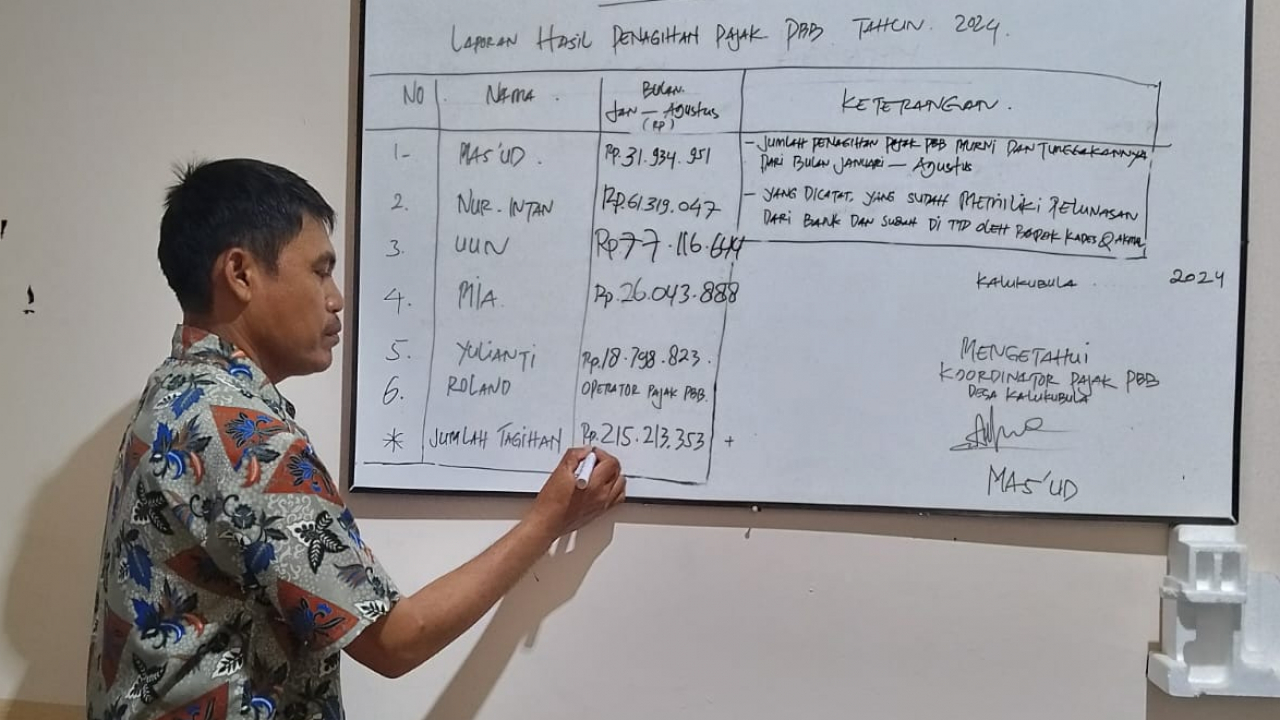 LAPORAN HASIL PENAGIHAN PAJAK PBB TAHUN. 2024.
NO NAMA. BULAN. JAN — AGUSTUS (RP) KETERANGAN.
1- MAS'UD. RP.31.934.951
2. NUR. INTAN RP.61.319.047
3. UUN RP77.116.644
4. MIA. RP.26.043.888
5. YULIANTI RP.18.798.823.
6. ROLAND OPERATOR PAJAK PBB.
* JUMLAH TAGIHAN RP.215.213.353 +
- JUMLAH PENAGIHAN PAJAK PBB MURNI DAN TUNGGAKANNYA
DARI BULAN JANUARI — AGUSTUS
- YANG DICATAT, YANG SUDAH MEMILIKI PELUNASAN
DARI BANK DAN SUDAH DI TTD OLEH BAPAK KADES
KALUKUBULA. 2024
MENGETAHUI
KOORDINATOR PAJAK PBB
DESA KALUKUBULA
MAS'UD